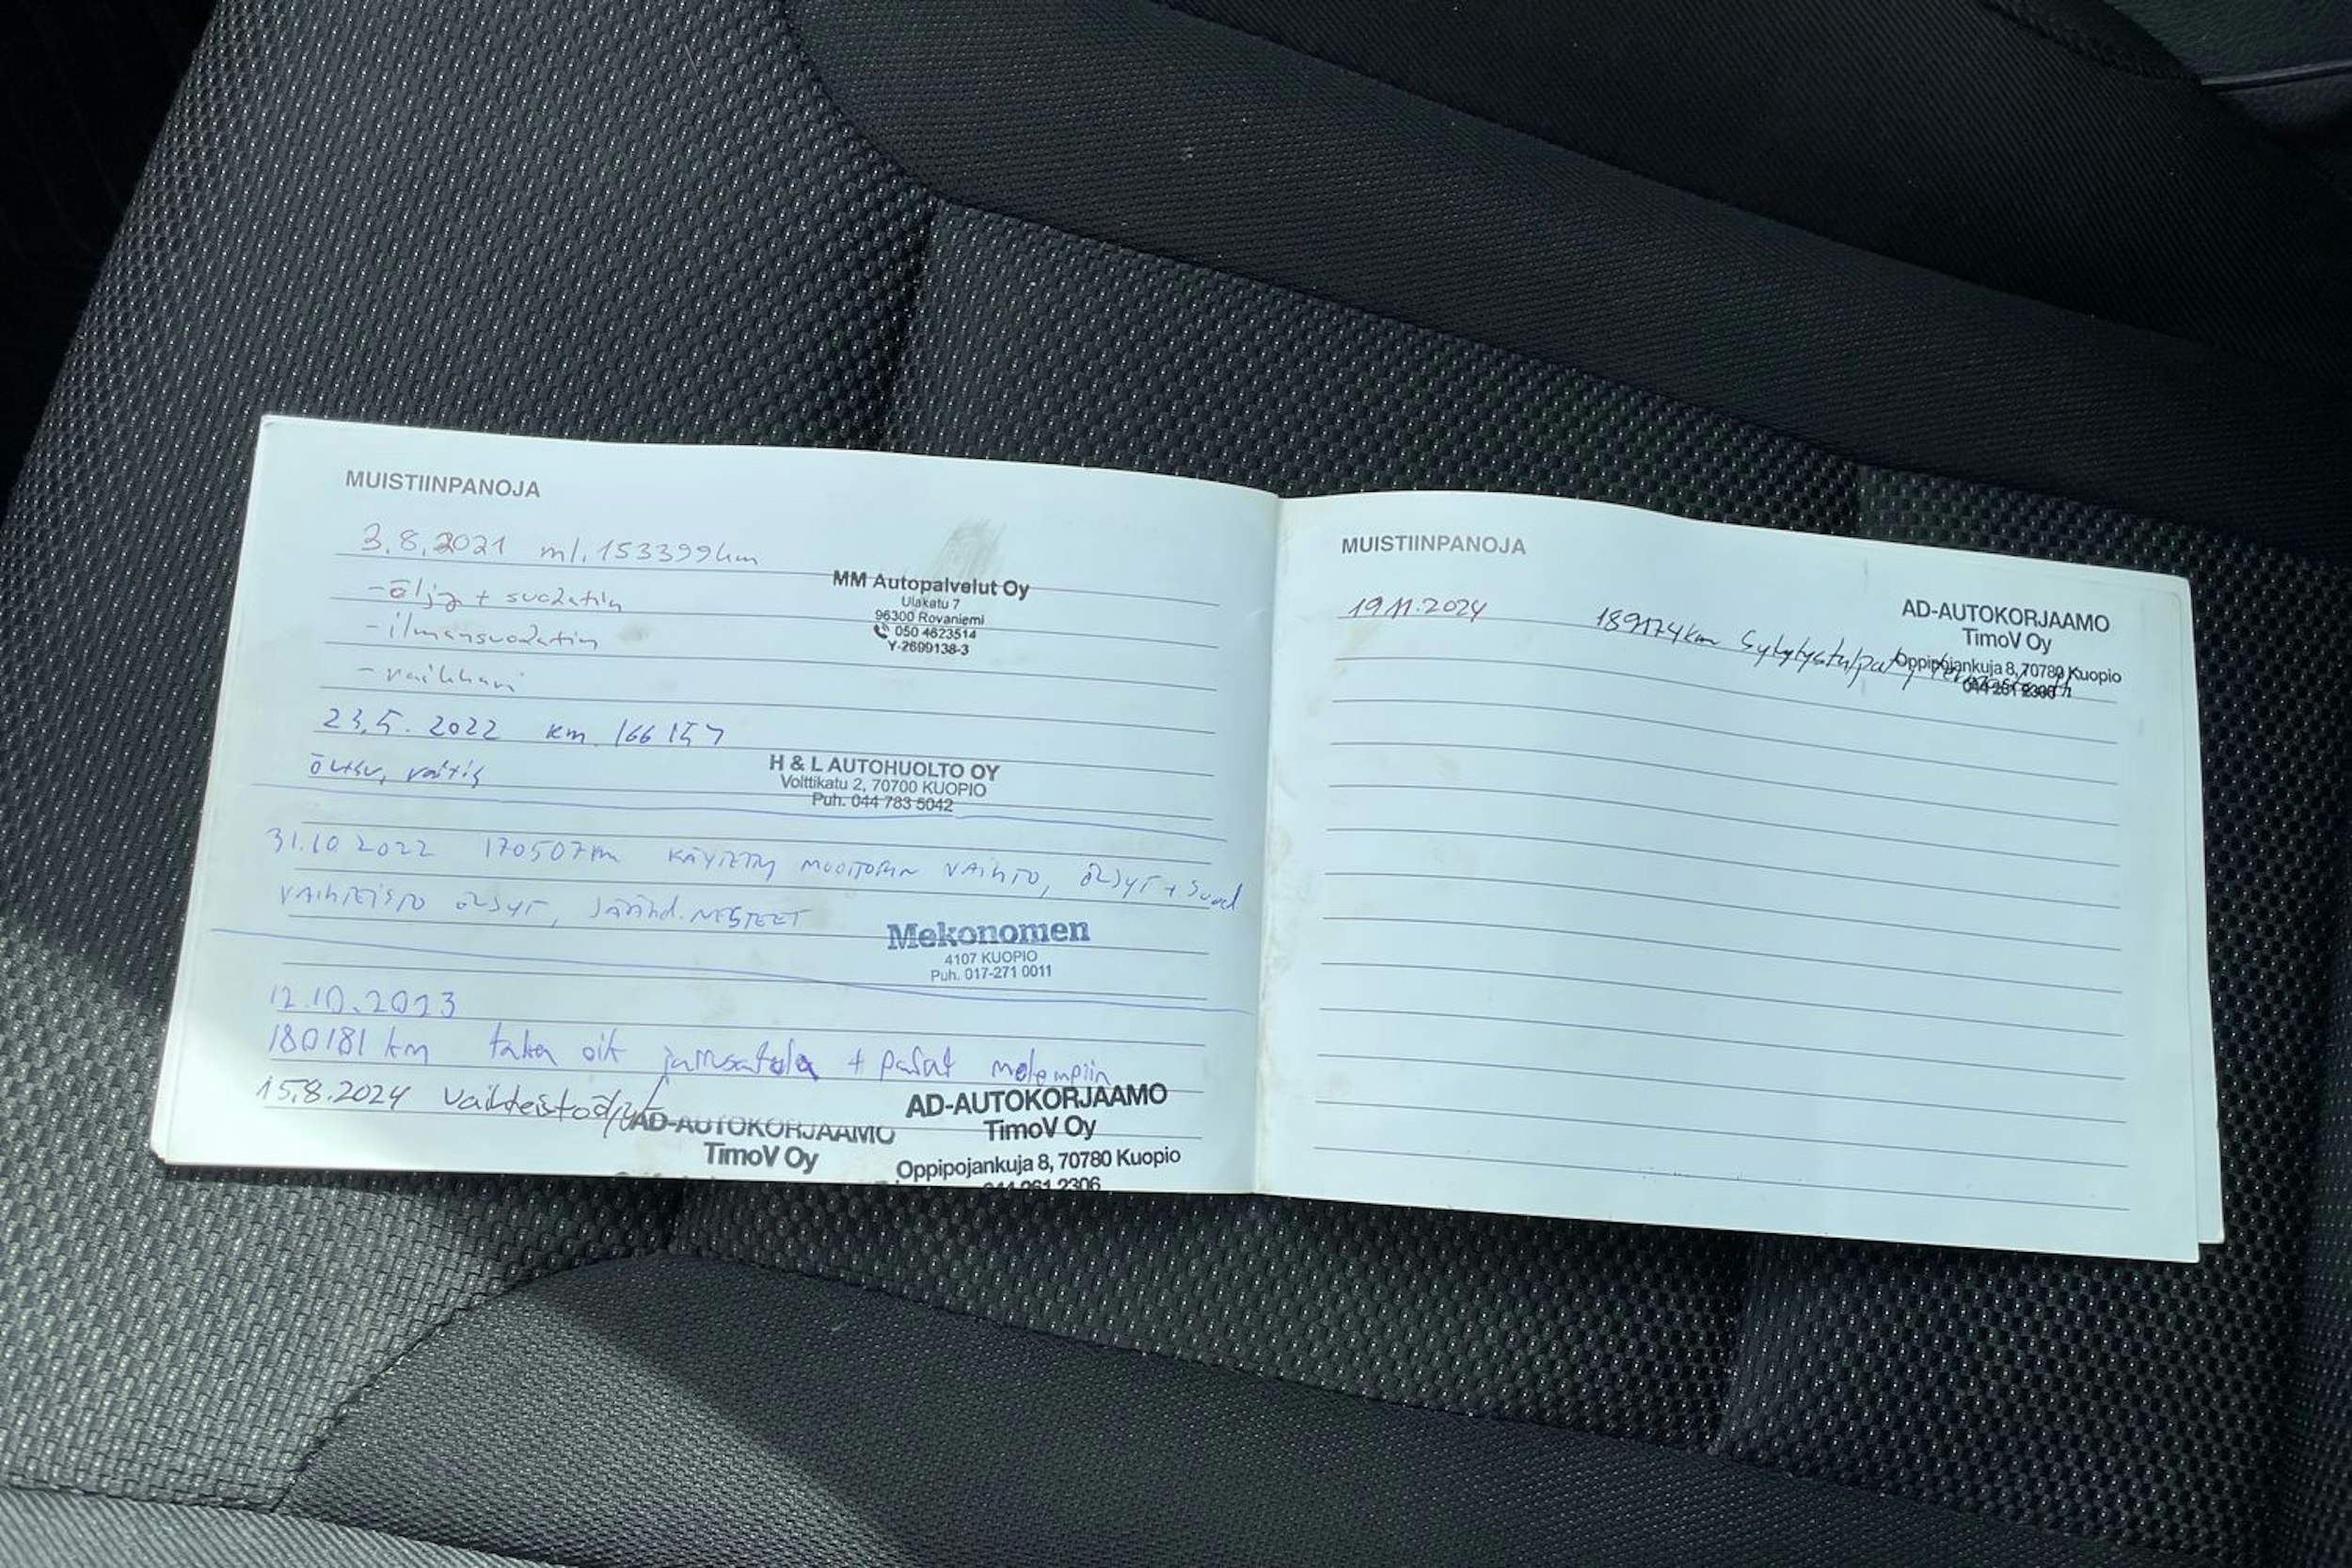 MUISTIINPANOJA
3.8.2021 ml. 153399km
MM Autopalvelut Oy
Ulakatu 7
96300 Rovaniemi
050 4623514
Y-2699138-3
-öljy + suodatin
-ilmansuodatin
-raikkari
23.5.2022 km. 166157
H & L AUTOHUOLTO OY
Volttikatu 2, 70700 KUOPIO
Puh. 044 783 5042
31.10 2022 170507km KÄYTETTY MOOTTORIN VAIHTO, ÖLJYT + Suod
VAIHTEISTO ÖLJYT, JÄÄHD. NESTEET
Mekonomen
4107 KUOPIO
Puh. 017-271 0011
12.10.2023
180181 km taka oik jarrusatula + palat molempiin
15.8.2024 Vaihteistoöljyt
AD-AUTOKORJAAMO
TimoV Oy
AD-AUTOKORJAAMO
TimoV Oy
Oppipojankuja 8, 70780 Kuopio
044 261 2306
MUISTIINPANOJA
19.11.2024 189174km Sytytystulpat
AD-AUTOKORJAAMO
TimoV Oy
Oppipojankuja 8, 70780 Kuopio
044 261 2306